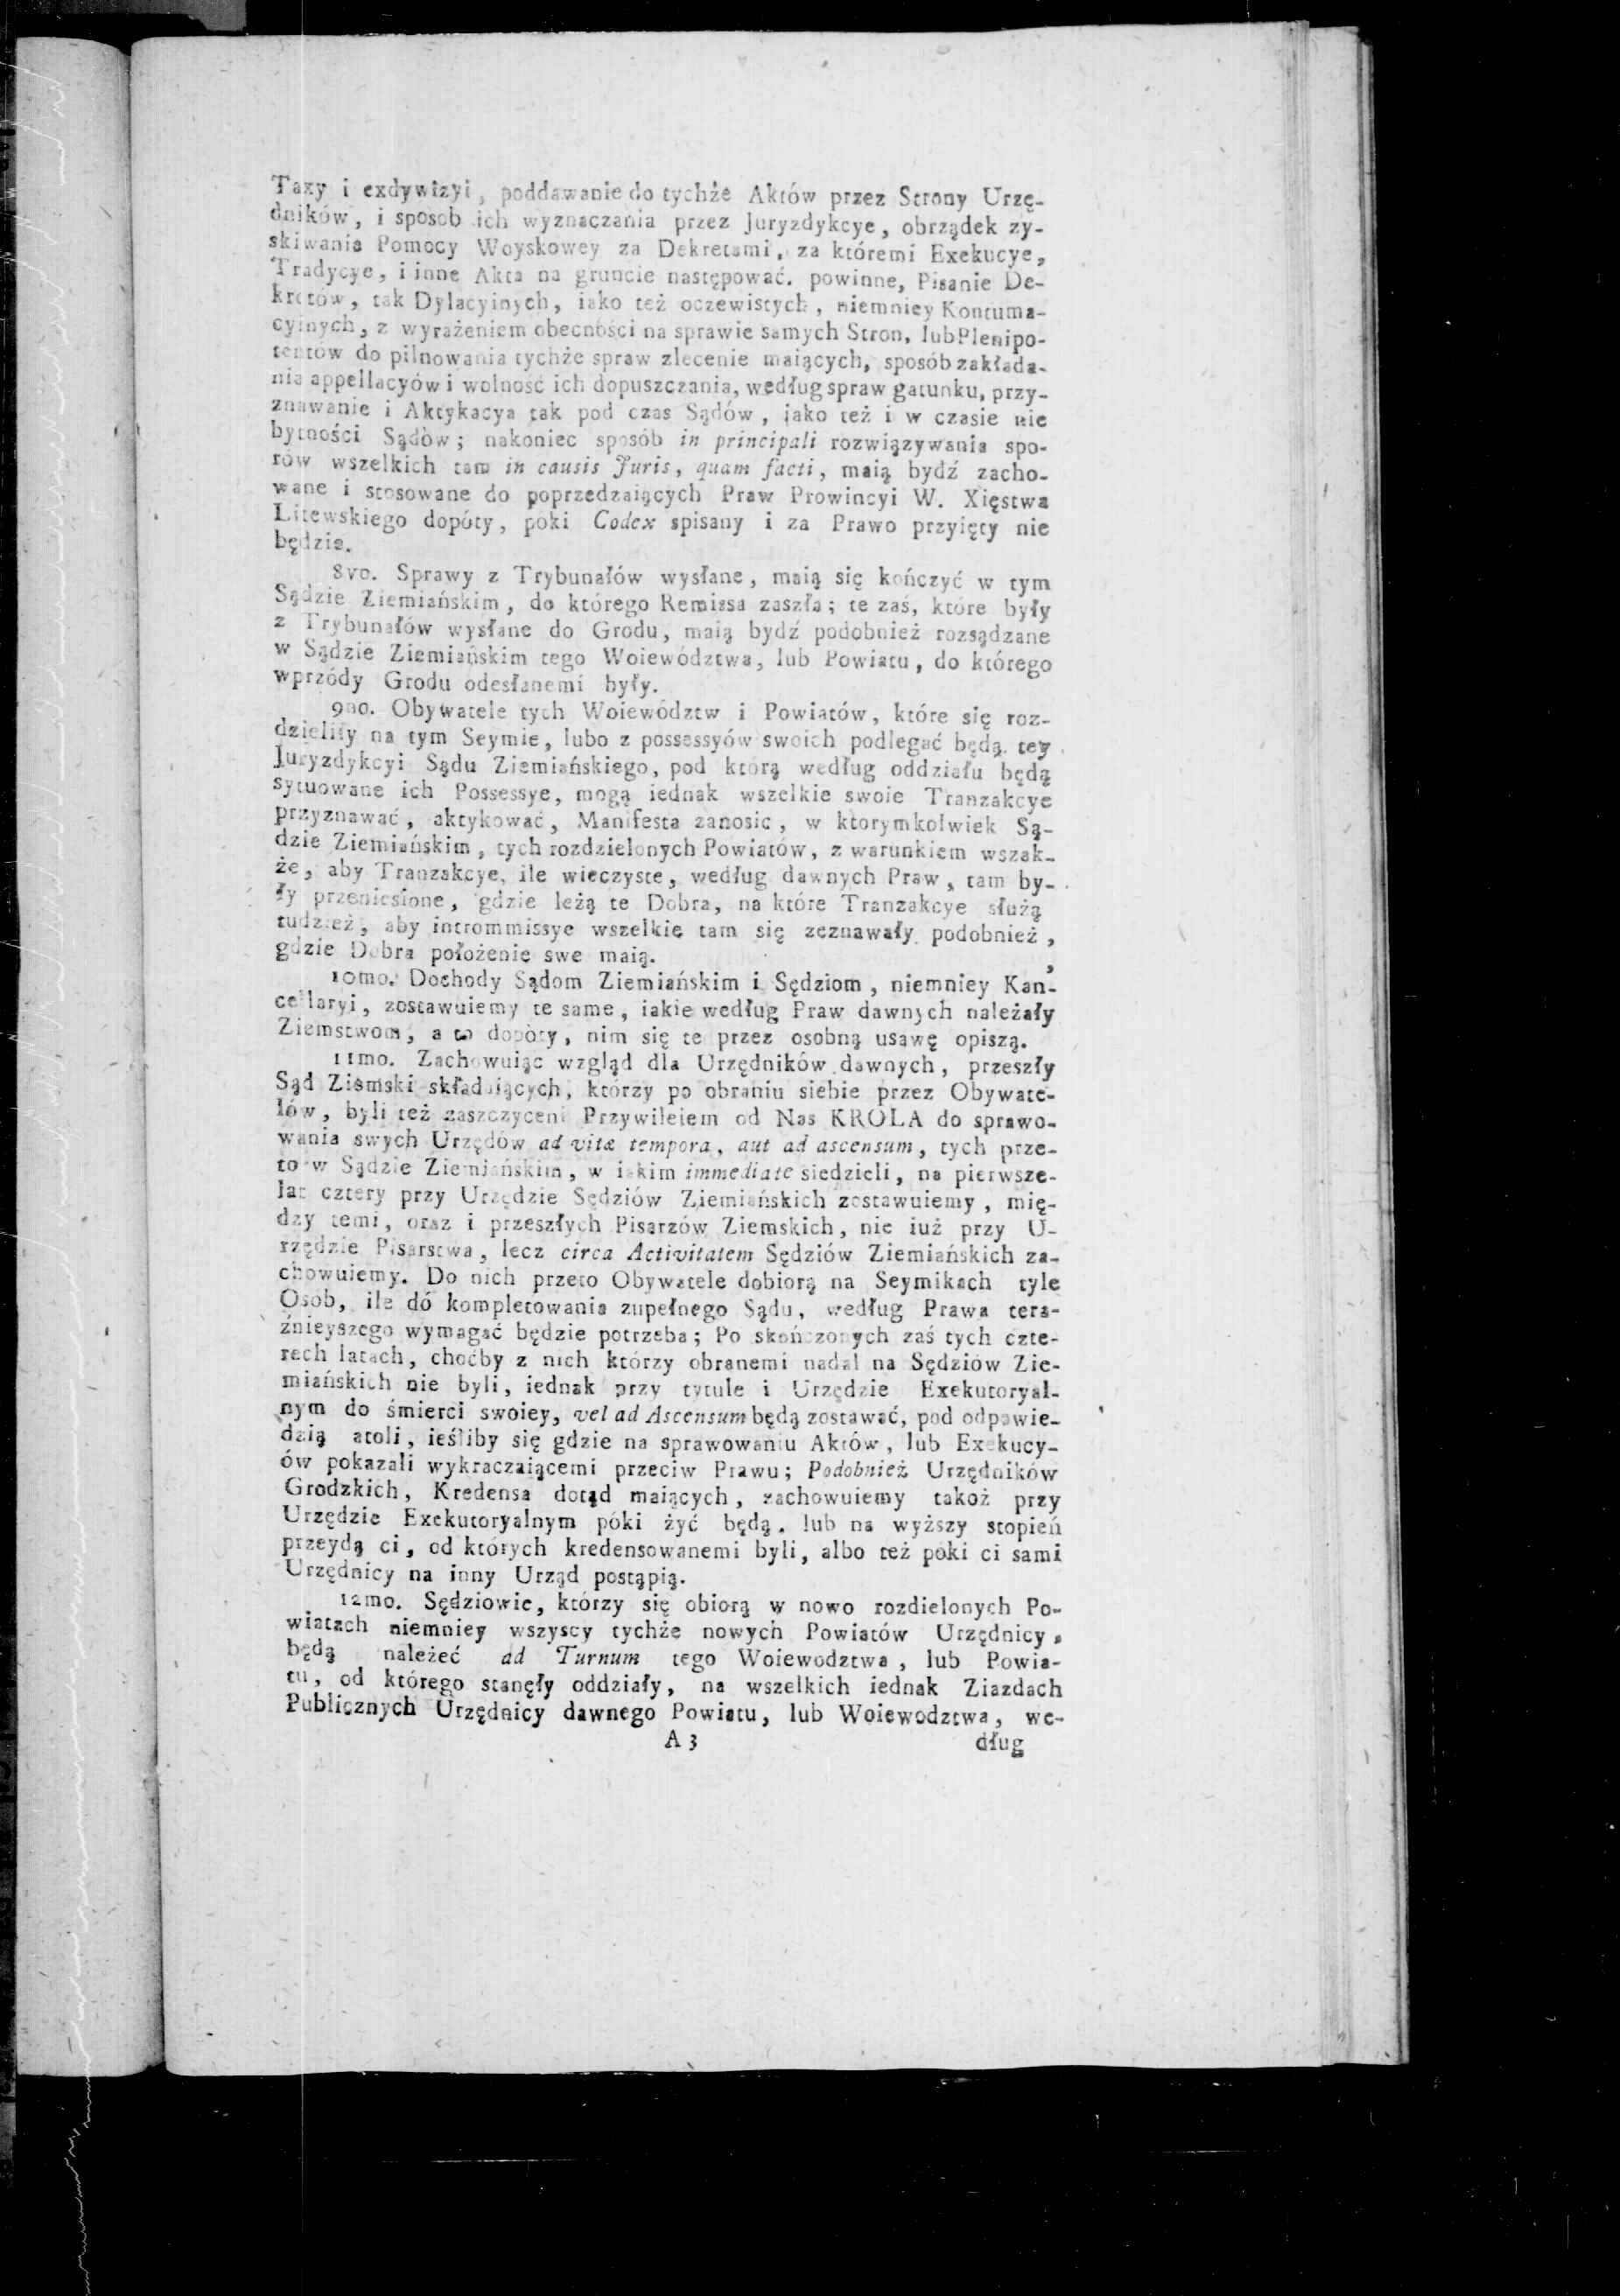 Taxy i exdywizyi, poddawanie do tychże Aktów przez Strony Urzę-
dników, i sposob ich wyznaczania przez Juryzdykcye, obrządek zy-
skiwania Pomocy Woyskowey za Dekretami, za któremi Exekucye,
Tradycye, i inne Akta na gruncie następować. powinne, Pisanie De-
kretow, tak Dylacyinych, iako też oczewistych, niemniey Kontuma-
cyinych, z wyrażeniem obecności na sprawie samych Stron, lub Plenipo-
tentow do pilnowania tychże spraw zlecenie maiących, sposób zakłada-
nia appellacyów i wolność ich dopuszczania, według spraw gatunku, przy-
znawanie i Aktykacya tak pod czas Sądów, iako też i w czasie nie
bytności Sądów; nakoniec sposób in principali rozwiązywania spo-
row wszelkich tam in causis Juris, quam facti, maią bydź zacho-
wane i stosowane do poprzedzaiących Praw Prowincyi W. Xięstwa
Litewskiego dopóty, poki Codex spisany i za Prawo przyięty nie
będzie.
8vo. Sprawy z Trybunałów wysłane, maią się kończyć w tym
Sądzie Ziemiańskim, do którego Remissa zaszła; te zaś, które były
z Trybunałów wysłane do Grodu, maią bydź podobnież rozsądzane
w Sądzie Ziemiańskim tego Woiewództwa, lub Powiatu, do którego
wprzódy Grodu odesłanemi były.
9no. Obywatele tych Woiewództw i Powiatów, które się roz-
dzieliły na tym Seymie, lubo z possessyów swoich podlegać będą tey
Juryzdykcyi Sądu Ziemiańskiego, pod którą według oddziału będą
sytuowane ich Possessye, mogą iednak wszelkie swoie Tranzakcye
przyznawać, aktykować, Manifesta zanosić, w ktorymkolwiek Są-
dzie Ziemiańskim, tych rozdzielonych Powiatów, z warunkiem wszak-
że, aby Tranzakcye, ile wieczyste, według dawnych Praw, tam by-
ły przeniesione, gdzie leżą te Dobra, na które Tranzakcye służą
tudzież, aby intrommissye wszelkie tam się zeznawały podobnież,
gdzie Dobra położenie swe maią.
10mo. Dochody Sądom Ziemiańskim i Sędziom, niemniey Kan-
cellaryi, zostawuiemy te same, iakie według Praw dawnych należały
Ziemstwom, a to dopóty, nim się te przez osobną usawę opiszą.
11mo. Zachowuiąc wzgląd dla Urzędników dawnych, przeszły
Sąd Ziemski składaiących, którzy po obraniu siebie przez Obywate-
lów, byli też zaszczyceni Przywileiem od Nas KROLA do sprawo-
wania swych Urzędów ad vitæ tempora, aut ad ascensum, tych prze-
to w Sądzie Ziemiańskim, w iakim immediate siedzieli, na pierwsze-
lat cztery przy Urzędzie Sędziów Ziemiańskich zostawuiemy, mię-
dzy temi, oraz i przeszłych Pisarzów Ziemskich, nie iuż przy U-
rzędzie Pisarstwa, lecz circa Activitatem Sędziów Ziemiańskich za-
chowuiemy. Do nich przeto Obywatele dobiorą na Seymikach tyle
Osob, ile dó kompletowania zupełnego Sądu, według Prawa tera-
źnieyszego wymagać będzie potrzeba; Po skończonych zaś tych czte-
rech latach, choćby z nich którzy obranemi nadal na Sędziów Zie-
miańskich nie byli, iednak przy tytule i Urzędzie Exekutoryal-
nym do śmierci swoiey, vel ad Ascensum będą zostawać, pod odpowie-
dzią atoli, ieśliby się gdzie na sprawowaniu Aktów, lub Exekucy-
ów pokazali wykraczaiącemi przeciw Prawu; Podobnież Urzędników
Grodzkich, Kredensa dotąd maiących, zachowuiemy takoż przy
Urzędzie Exekutoryalnym póki żyć będą, lub na wyższy stopień
przeydą ci, od których kredensowanemi byli, albo też póki ci sami
Urzędnicy na inny Urząd postąpią.
12mo. Sędziowie, którzy się obiorą w nowo rozdielonych Po-
wiatach niemniey wszyscy tychże nowych Powiatów Urzędnicy,
będą należeć ad Turnum tego Woiewodztwa, lub Powia-
tu, od którego stanęły oddziały, na wszelkich iednak Ziazdach
Publicznych Urzędnicy dawnego Powiatu, lub Woiewodztwa, we-
A 3 dług